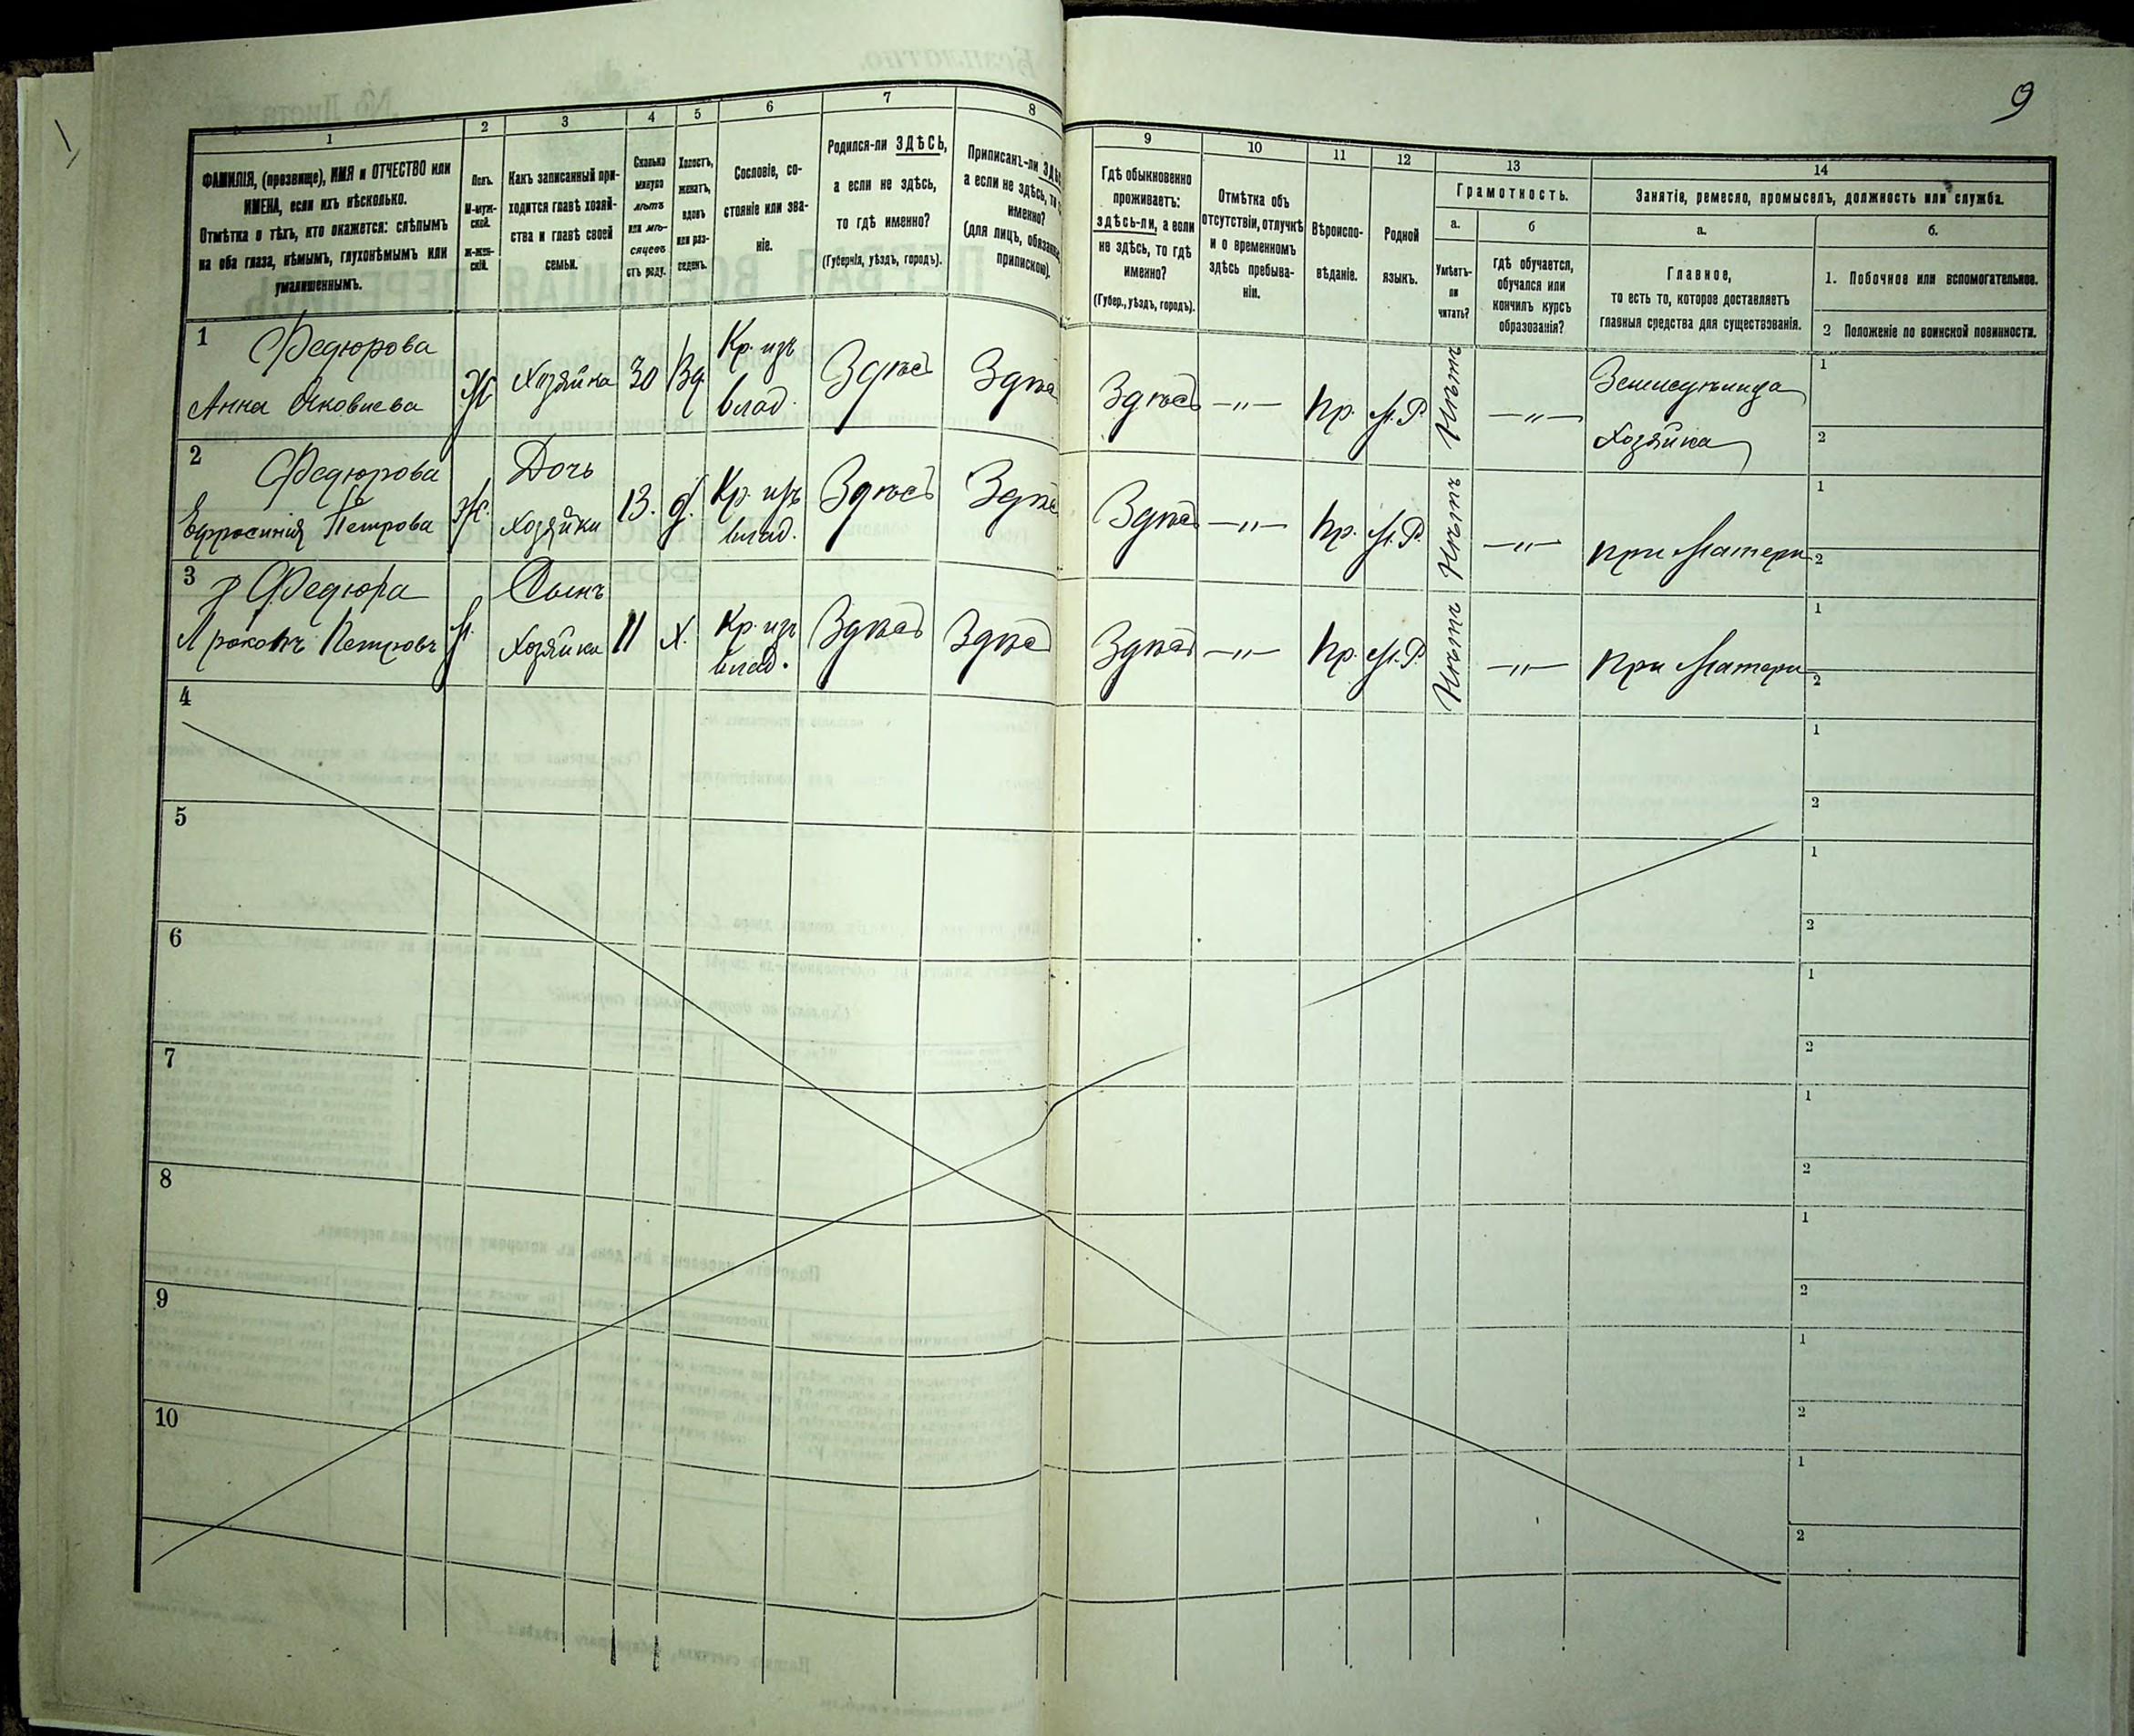 9
1
ФАМИЛІЯ, (прозвище), ИМЯ и ОТЧЕСТВО или
ИМЕНА, если ихъ нѣсколько.
Отмѣтка о тѣхъ, кто окажется: слѣпымъ
на оба глаза, нѣмымъ, глухонѣмымъ или
умалишеннымъ.
2
Полъ.
М-муж-
ской.
Ж-жен-
скій.
3
Какъ записанный при-
ходится главѣ хозяй-
ства и главѣ своей
семьи.
4
Сколько
минуло
лѣтъ
или мѣ-
сяцевъ
отъ роду.
5
Холостъ,
женатъ,
вдовъ
или раз-
веденъ.
6
Сословіе, со-
стояніе или зва-
ніе.
7
Родился-ли ЗДѢСЬ,
а если не здѣсь,
то гдѣ именно?
(Губернія, уѣздъ, городъ).
8
Приписанъ-ли
а если не здѣсь,
именно?
(для лицъ,
припискою).
9
Гдѣ обыкновенно
проживаетъ:
здѣсь-ли, а если
не здѣсь, то гдѣ
именно?
(Губер., уѣздъ, городъ).
10
Отмѣтка объ
отсутствіи, отлучкѣ
и о временномъ
здѣсь пребыва-
ніи.
11
Вѣроиспо-
вѣданіе.
12
Родной
языкъ.
13
Грамотность.
а.
Умѣетъ-
ли
читать?
б
Гдѣ обучается,
обучался или
кончилъ курсъ
образованія?
14
Занятіе, ремесло, промыселъ, должность или служба.
а.
Главное,
то есть то, которое доставляетъ
главныя средства для существованія.
б.
1. Побочное или вспомогательное.
2 Положеніе по воинской повинности.
1
Федюрова
Анна Яковлева
Ж
Хозяйка
30
Вд
Кр. изъ
влад.
Здѣсь
Здѣсь
Здѣсь
—"—
Пр.
М.Р.
Нѣтъ
—"—
Земледѣлица
Хозяйка
1
2
2
Федюрова
Ефросинія Петрова
Ж.
Дочь
Хозяйки
13.
д.
Кр. изъ
влад.
Здѣсь
Здѣсь
Здѣсь
—"—
Пр.
М.Р.
Нѣтъ
—"—
при Матери
1
2
3
Федюра
Прокопъ Петровъ
М.
Сынъ
Хозяйки
11
Х.
Кр. изъ
влад.
Здѣсь
Здѣсь
Здѣсь
—"—
Пр.
М.Р.
Нѣтъ
—"—
при Матери
1
2
4
1
2
5
1
2
6
1
2
7
1
2
8
1
2
9
1
2
10
1
2